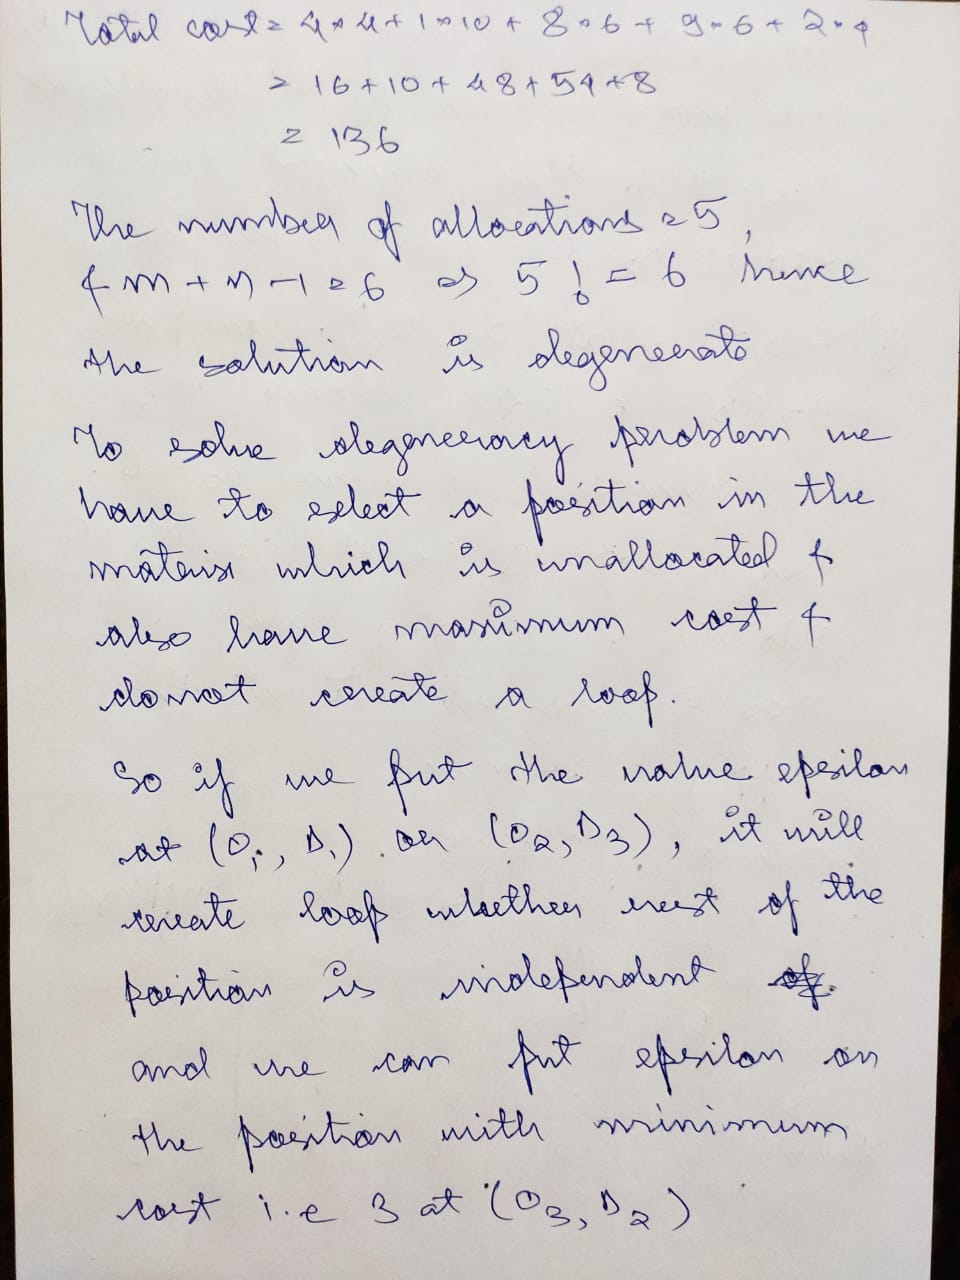 Total cost = 4*4 + 1*10 + 8*6 + 9*6 + 2*4
= 16+10+48+54+8
= 136
The number of allocations = 5,
& m+n-1=6 => 5 != 6 hence
the solution is degenerate
To solve degeneracy problem we
have to select a position in the
matrix which is unallocated &
also have maximum cost &
donot create a loop.
So if we put the value epsilon
at (O1, D1) or (O2, D3), it will
create loop whether rest of the
position is independent
and we can put epsilon on
the position with minimum
cost i.e 3 at (O3, D2)